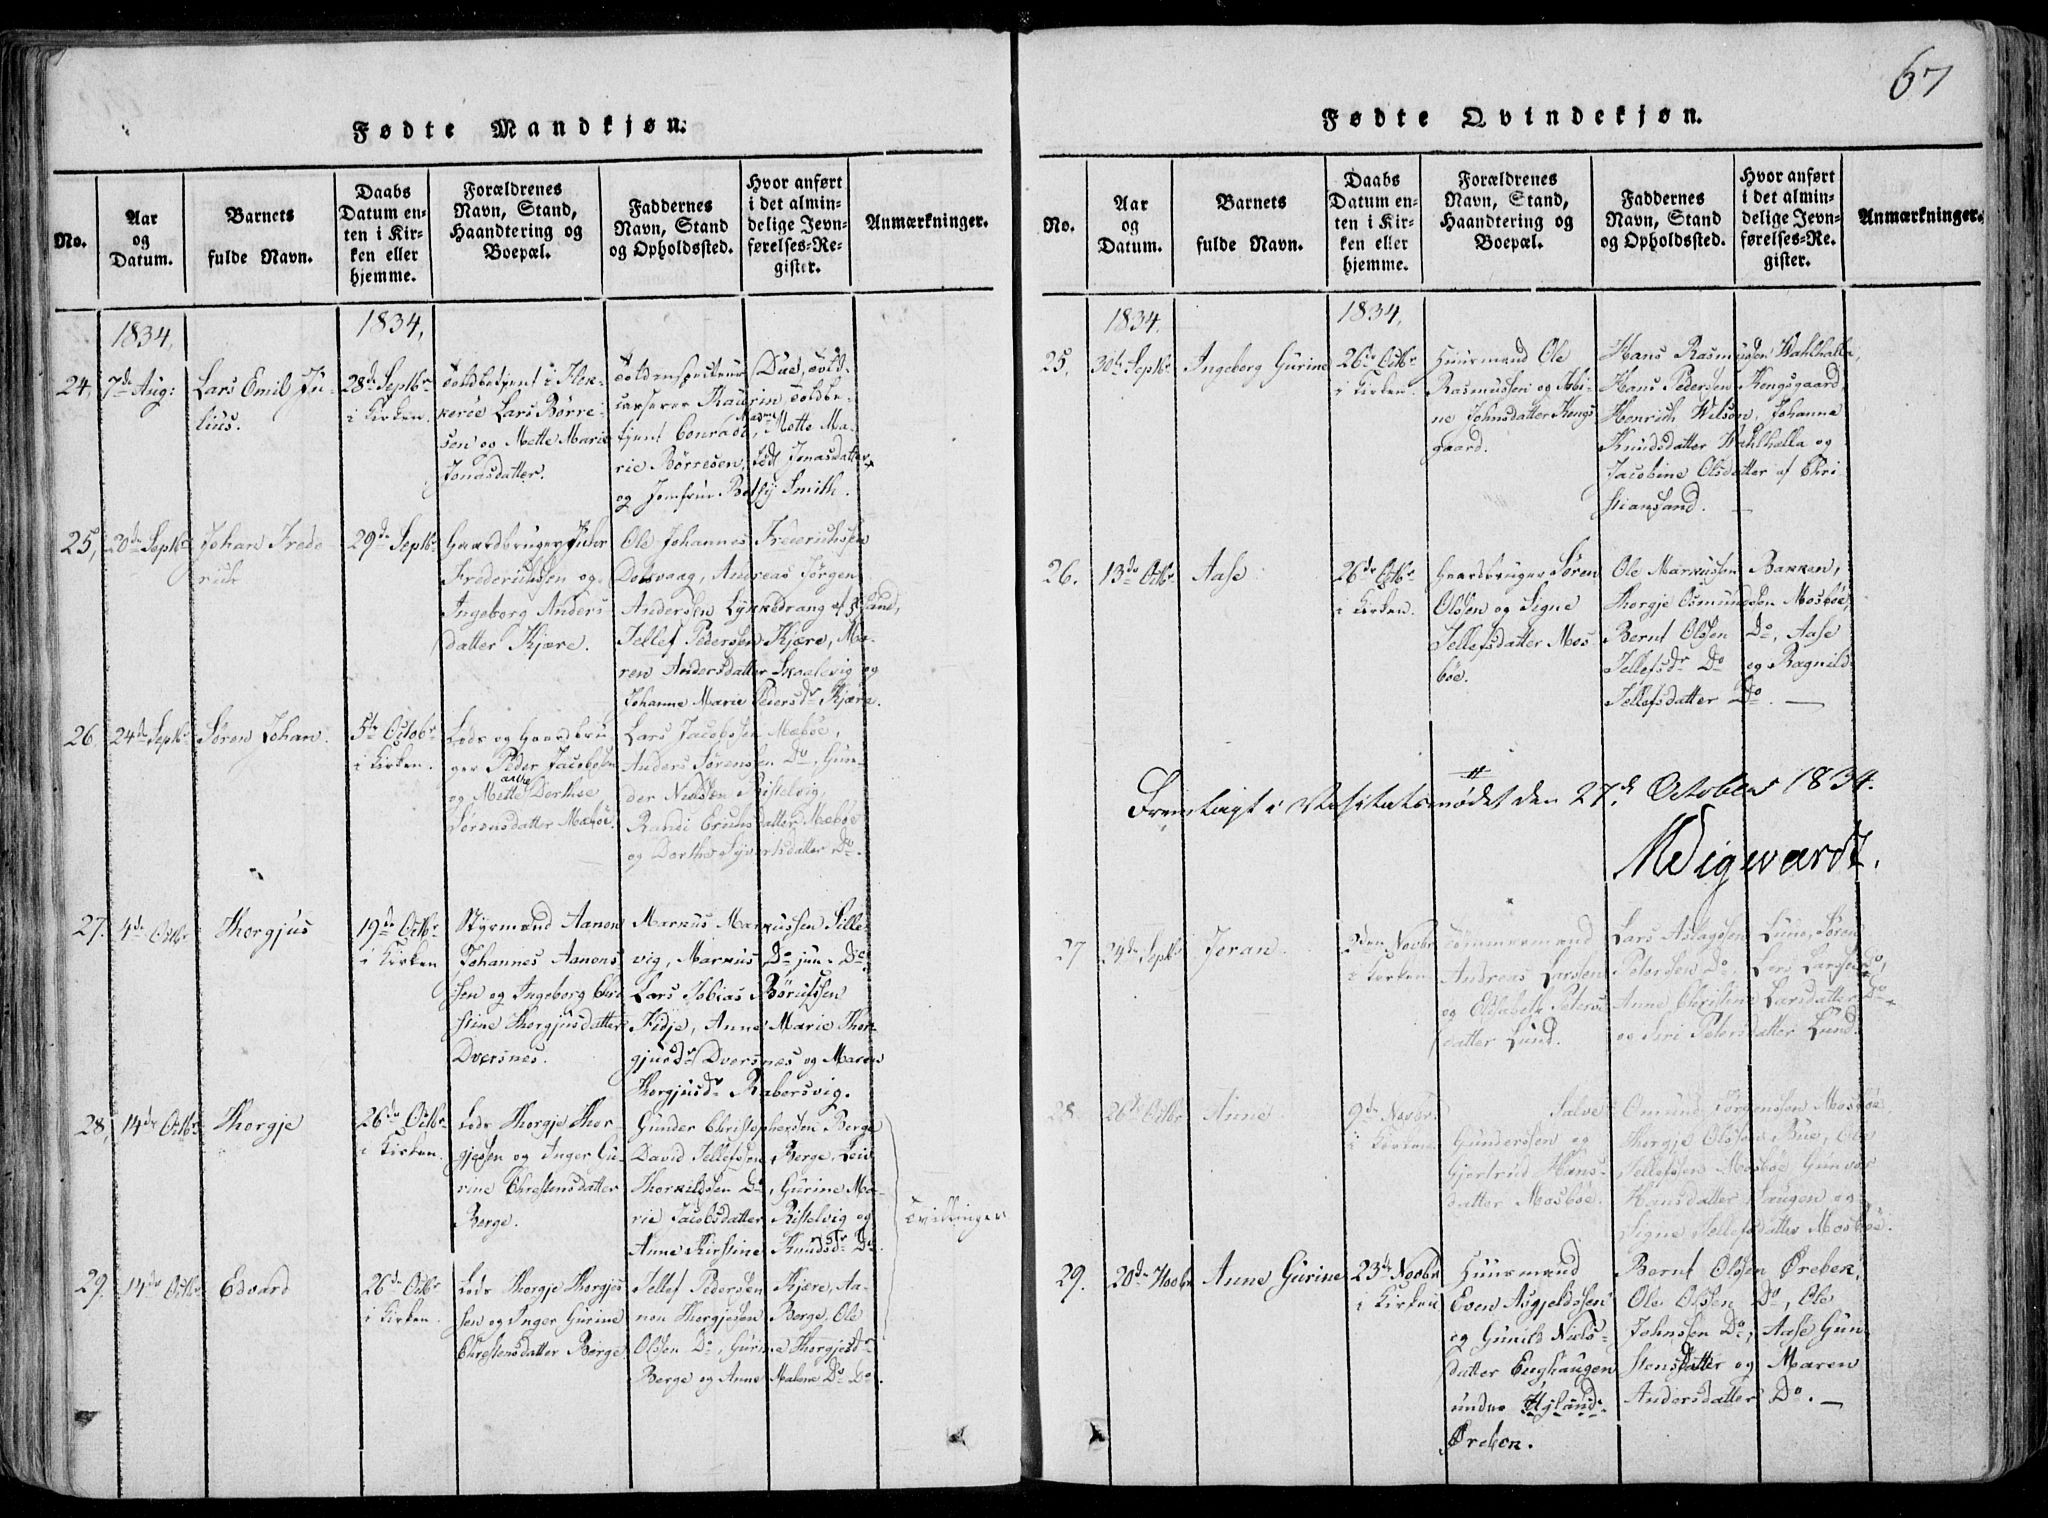 67
Fødte Mandkjøn.
No.
Aar og Datum.
Barnets fulde Navn.
Daabs Datum enten i Kirken eller hjemme.
Forældrenes Navn, Stand, Haandtering og Boepæl.
Faddernes Navn, Stand og Opholdssted.
Hvor anført i det almindelige Jevnførelses-Register.
Anmærkninger.
1834,
1834,
24,
7de Aug:
Lars Emil Ju-
lius.
28de Septbr
i Kirken.
Toldbetjent i Flek-
kerøe Lars Børre-
sen og Mette Marie
Jonasdatter.
Toldinspecteur Due, Told-
casserer Thaurin, Toldbe-
tjent Conradi, Mad: Mette Ma-
rie Børresen, født Jonasdatter
og Jomfru Betsy Smith.
25,
20de Septbr
Johan Frede
rich
29de Septbr
Gaardbruger Peder
Frederichsen og
Ingeborg Anders
datter Kjære.
Ole Johannes Frederichsen
Dolsvaag, Andreas Jørgen
Andersen Lykkedrang af
Tellef Pedersen Kjære, Ma-
ren Andersdatter Skaalevig og
Johanne Marie Pedersdr Kjære.
26.
24de Septbr
Søren Johan.
5te Octobr
i Kirken.
Lods og Gaardbru
ger Peder Jacobsen
og Mette Dorthe
Sørensdatter Mæbøe.
Lars Jacobsen Mæbøe,
Anders Sørensen Do, Gun-
der Nielsen Ristelvig,
Randi Erichsdatter Mæbøe
og Dorthe Syvertsdatter Do.
27.
4de Octbr
Thorgjus
19de Octbr
i Kirken
Styrmand Aanon
Johannes Aanons
sen og Ingeborg Chri
stine Thorgjusdatter
Dversnes.
Markus Markussen Kille-
vig, Markus Do jun. Do
Lars Tobias Børufsen
Fidje, Anne Marie Thor-
gjusdr Dversnes og Maren
Thorgjusdr Rabersvig.
28,
14de Octbr
Thorgje
26de Octbr
i Kirken.
Lods Thorgje Thor-
gjesen og Inger Gu-
rine Christensdatter
Berge.
Gunder Christophersen Berge
David Tellefssen Berge, Leif
Thorkildsen Do, Gurine Ma-
rie Jacobsdatter Ristelvig og
Anne Kirstine Knudsdr Do.
Tvillinger
29.
14de Octbr
Edvard
26de Octbr
i Kirken.
Lods Thorgje Thorgjes
sen og Inger Gurine
Christensdatter Berge.
Tellef Pedersen Kjære, Aa-
non Thorgjesen Berge, Ole
Olsen Do, Gurine Thorgjesdr
Berge og Anne Malene Do Do.
Fødte Qvindekjøn.
No.
Aar og Datum.
Barnets fulde Navn.
Daabs Datum enten i Kirken eller hjemme.
Forældrenes Navn, Stand, Haandtering og Boepæl.
Faddernes Navn, Stand og Opholdssted.
Hvor anført i det almindelige Jevnførelses-Re. gister.
Anmærkninger.
1834.
1834,
25.
30te Septbr
Ingeborg Gurine
26de Octbr
i Kirken.
Huusmand Ole
Rasmussen og Tobi-
ne Johnsdatter Kongs
gaard.
Hans Rasmussen Wahlhalla,
Hans Pedersen Kongsgaard
Henrich Wilson, Johanne
Knudsdatter Wahlhalla og
Jacobine Olsdatter af Chri
stiansand.
26.
13de Octbr
Aase
26de Octbr
i Kirken.
Gaardbruger Søren
Olsen og Signe
Tellefsdatter Mos
bøe.
Ole Markussen Bakken,
Thorgje Osmundsen Mosbøe,
Bernt Olsen Do, Aase
Tellefsdr Do og Ragnild
Tellefsdatter Do.
Fremlagt i Visitatsmødet den 27de October 1834.
27
24de Septbr
Joran
2den Novbr
i Kirken
Tømmermand
Andreas Larsen
og Elisabeth Peters
datter Lund.
Lars Aslagsen Lund, Søren
Petersen Do, Lars Larsen Do,
Anne Christine Larsdatter Do
og Siri Petersdatter Lund.
28
26de Octbr
Anne
9de Novbr
i Kirken
Salve
Gundersen og
Gjertrud Hans-
datter Mosbøe.
Omund Jørgensen Mosbøe
Thorgje Olsen Bue, Ole
Tellefsen Mosbøe, Gunvor
Hansdatter Haugen og
Signe Tellefsdatter Mosbøe.
29.
20de Novbr
Anne Gurine
23de Novbr
i Kirken
Huusmand
Even Asgjeldsen
og Gunild Niels-
datter Enghaugen
under
Øreben.
Bernt Olsen Øreben,
Ole Olsen Do, Ole
Johnsen Do, Aase Gun-
stensdatter og Maren
Andersdatter Do.